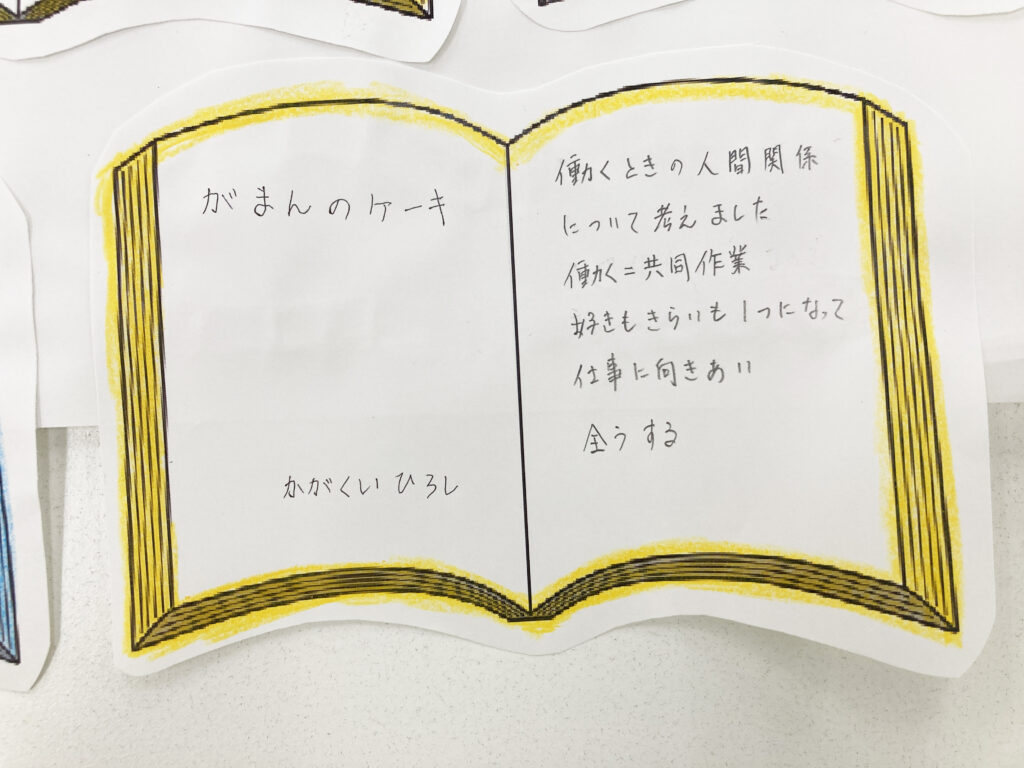 がまんのケーキ
かがくいひろし
働くときの人間関係
について考えました
働く=共同作業
好きもきらいも1つになって
仕事に向きあい
全うする